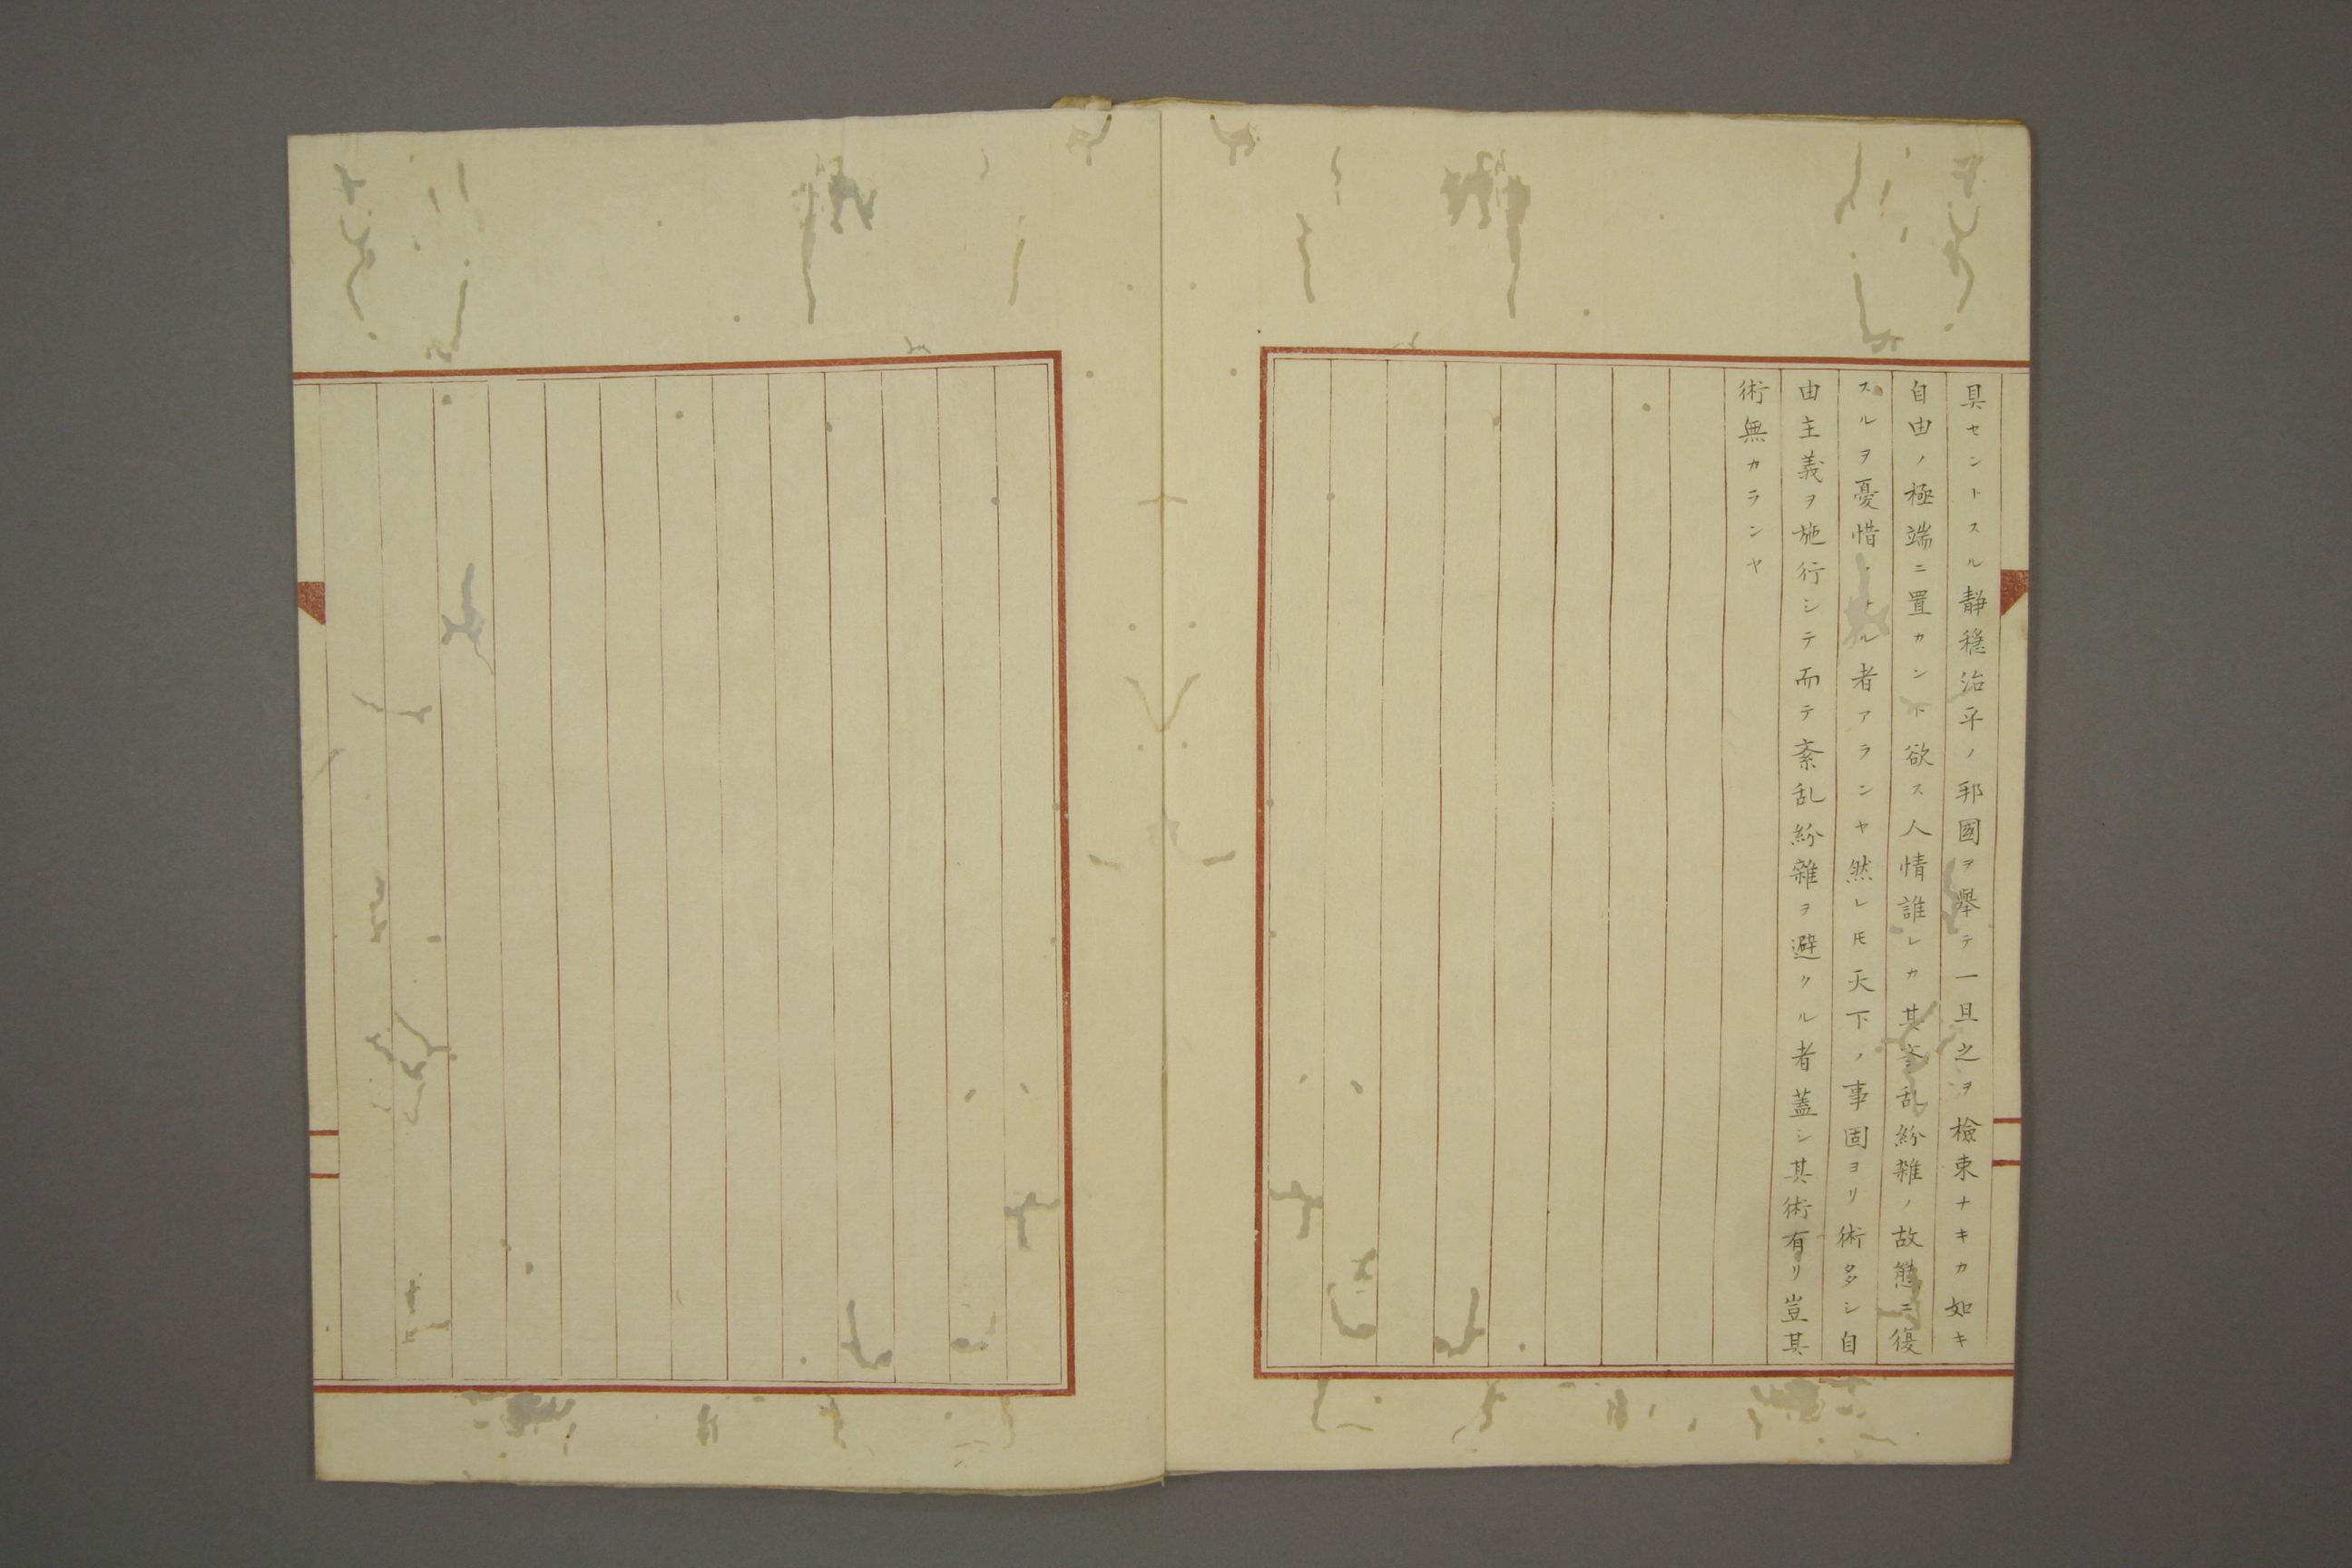 具セントスル静穏治平ノ邦國ヲ擧テ一旦之ヲ檢束ナキカ如キ
自由ノ極端ニ置カント欲ス人情誰レカ其紊乱紛雜ノ故態ニ復
スルヲ憂惜ル者アランヤ然レ𪜈天下ノ事固ヨリ術多シ自
由主義ヲ施行シテ而テ紊乱紛雜ヲ避クル者蓋シ其術有リ豈其
術無カランヤ